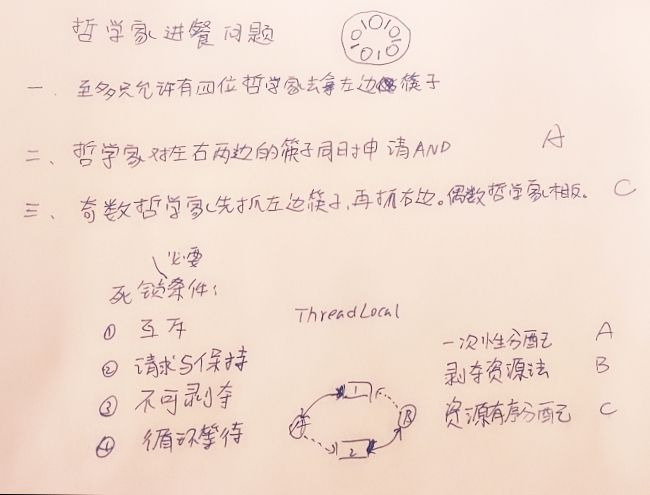 哲学家进餐问题
一、至多只允许有四位哲学家去拿左边筷子
二、哲学家对左右两边的筷子同时申请AND A
三、奇数哲学家先抓左边筷子，再抓右边。偶数哲学家相反。 C
必要
死锁条件：
① 互斥
② 请求与保持
③ 不可剥夺
④ 循环等待
ThreadLocal
A 1 B 2
一次性分配 A
剥夺资源法 B
资源有序分配 C